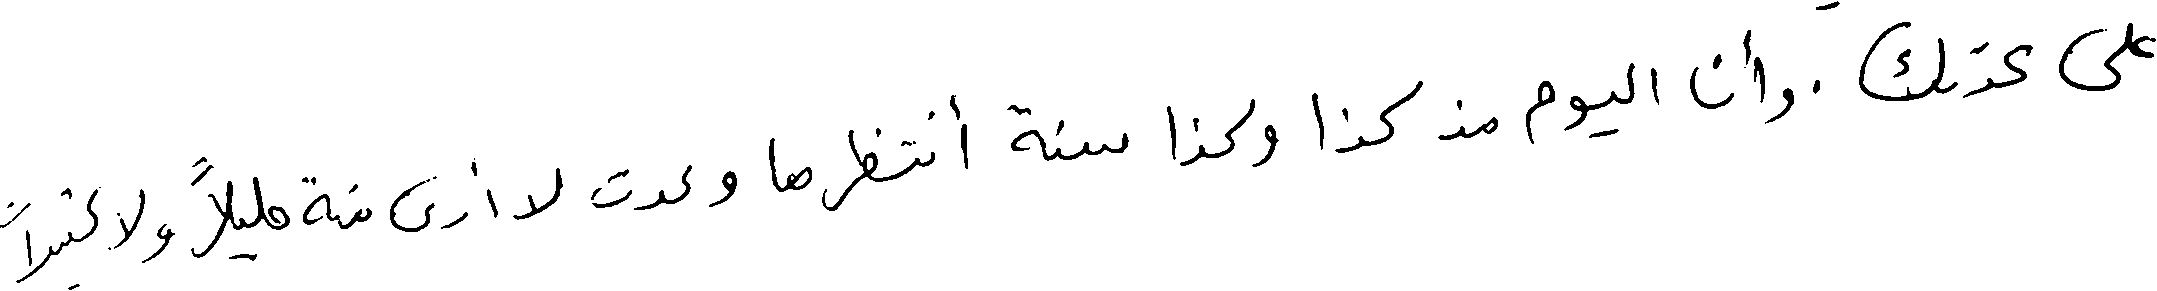 على عدتك . وأنا اليوم مذ كذا وكذا سنة أنتظرها وعدت لا أرى منة قليلاً ولا كثيراً